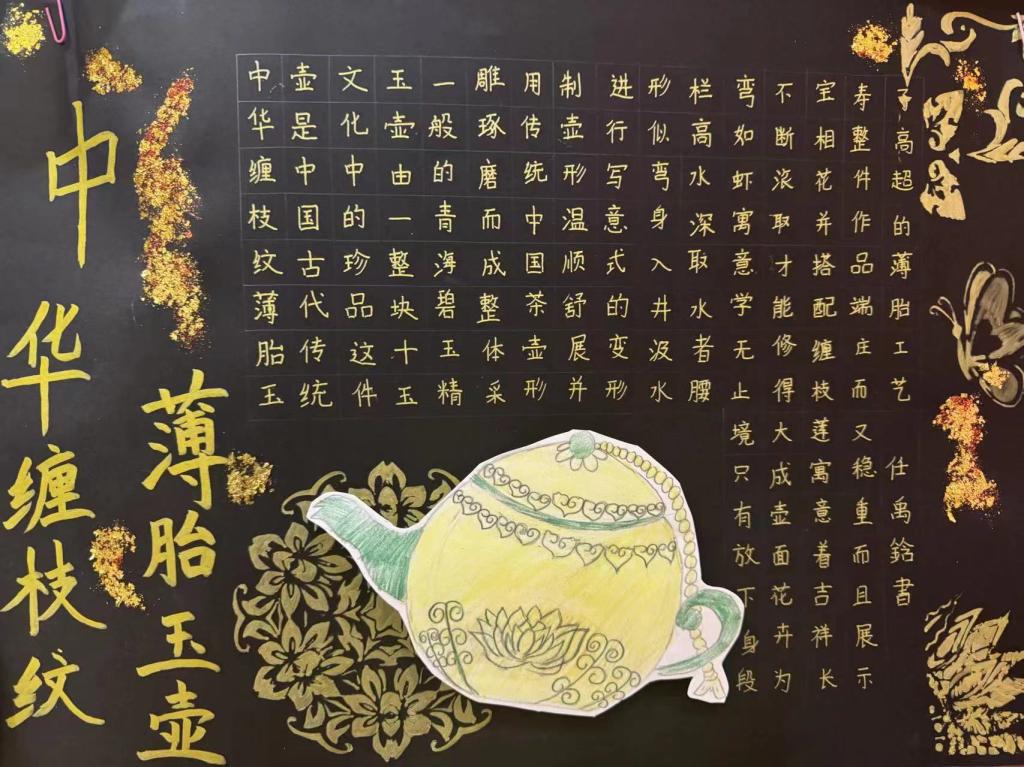 中华缠枝纹
薄胎玉壶
中华缠枝纹薄胎玉
壶是中国古代传统
文化中的珍品这件
玉壶由一整块十玉
一般的青海碧玉精
雕琢磨而成整体采
用传统中国茶壶形
制壶形温顺舒展并
进行写意式的变形
形似弯身入井汲水
栏高水深取水者腰
弯如虾寓意学无止境只有放下身段
不断滚取才能修得大成壶面花卉为
宝相花并搭配缠枝莲寓意着吉祥长
寿整件作品端庄而又稳重而且展示
子高超的薄胎工艺 仕禹書